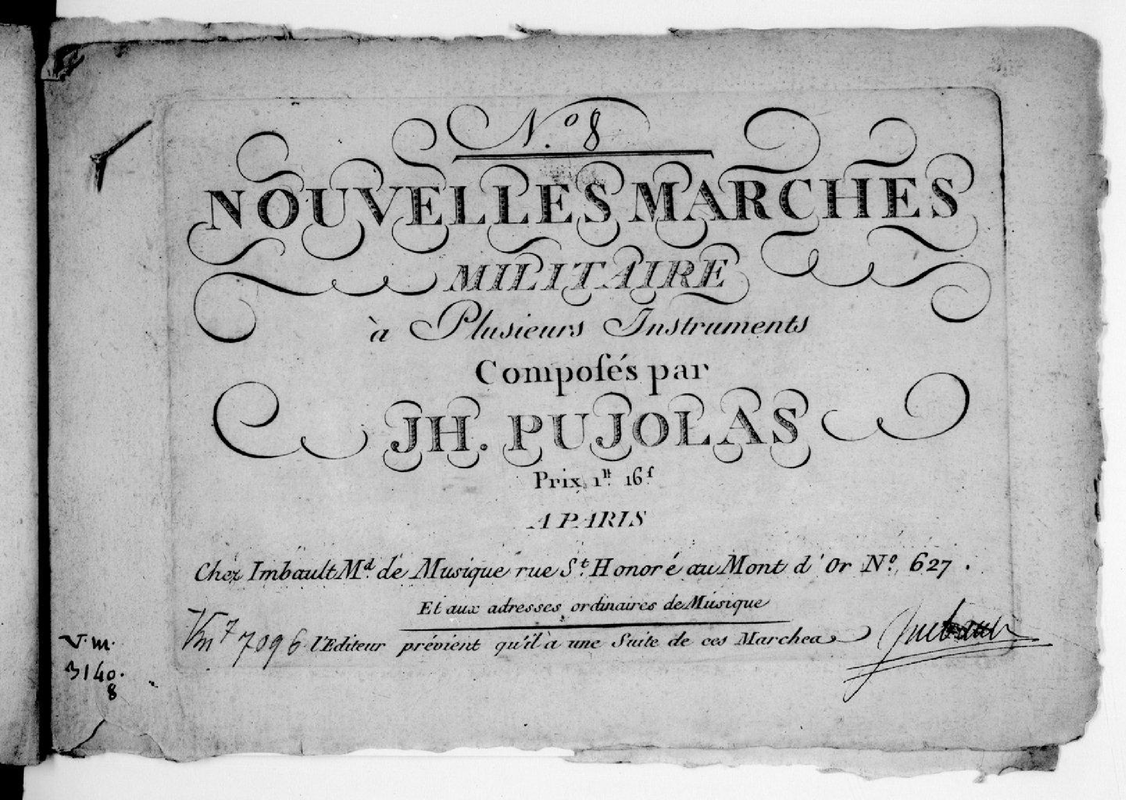 N.o 8
NOUVELLES MARCHES
MILITAIRE
à Plusieurs Instruments
Composés par
JH. PUJOLAS
Prix 1tt. 16f
A PARIS
Chez Imbault Md. de Musique rue St. Honoré au Mont d'Or No. 627.
Et aux adresses ordinaires de Musique
l'Editeur prévient qu'il à une Suite de ces Marches
Vm7 7096
V.m.
3140.
8
Imbault